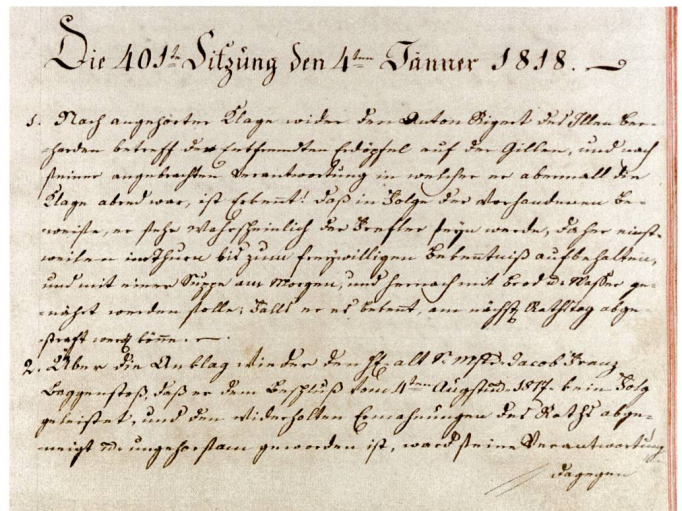 Die 401te Sitzung den 4ten Jänner 1818.
1. Nach angehörter Klage wider den Anton Rigert des Illen Ger-
harden betreff der entfremdten Erdöpfel auf der Gillen, und nach
seiner angebrachten Verantwortung in welcher er abermall die
Klage abred war, ist erkennt: daß in Folge der vorhandenen Be-
weise, er sehr wahrscheinlich der Frefler seyn werde, daher einst-
weilen im Thurn bis zum freywilligen Bekenntniß aufbehalten,
und mit einer Suppe am Morgen, und hernach mit Brod u: Wasser ge-
nährt werden solle; Falls er es bekennt, am nächst Rathstag abge-
straft werd könne.
2. Über die Anklag wieder den H: alt Jacob Franz
Baggenstoß, daß er dem Beschluß vom 4ten Augstm: 1817 kein Folg
geleistet, und den widerholten Ermahnungen des Raths abge-
neigt u: ungehorsam geworden ist, ward seine Verantwortung
dagegen